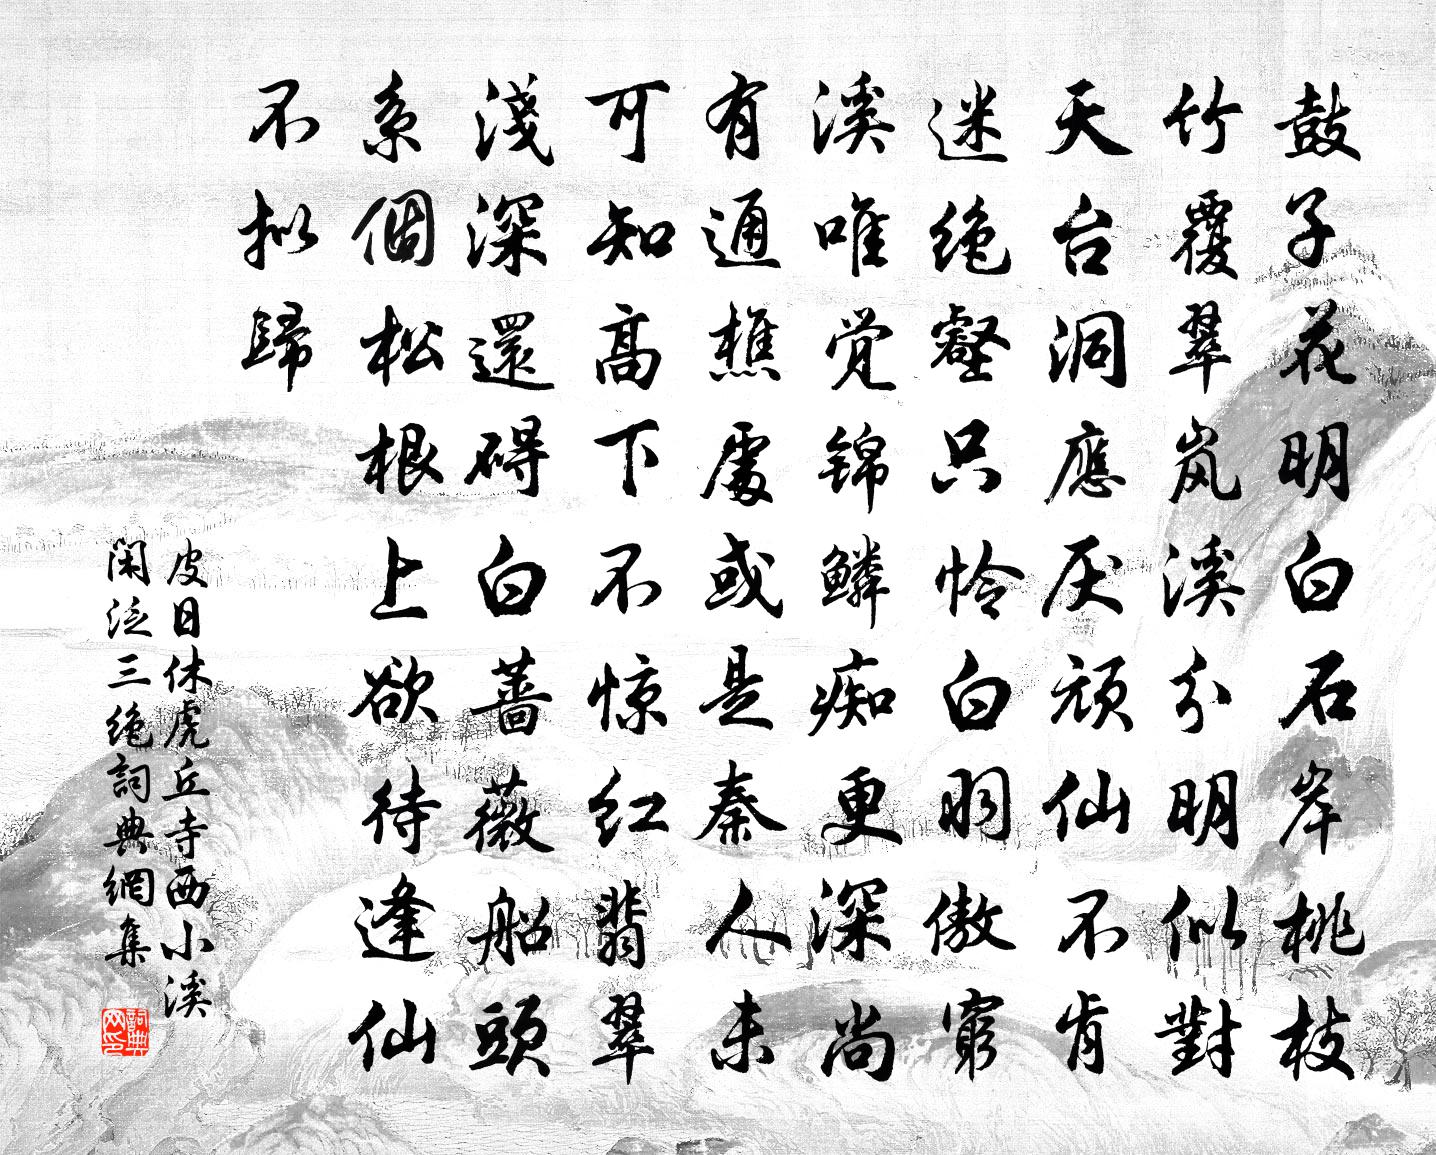 鼓子花明白石岸桃枝
竹覆翠岚溪分明似對
天台洞應厌頑仙不肯
迷绝壑只怜白羽傲窮
溪唯觉锦鳞痴更深尚
有通樵處或是秦人未
可知高下不惊红翡翠
淺深還碍白蔷薇船頭
系個松根上欲待逢仙
不拟歸
皮日休虎丘寺西小溪
閑泛三绝詞典網集
詞典
网印